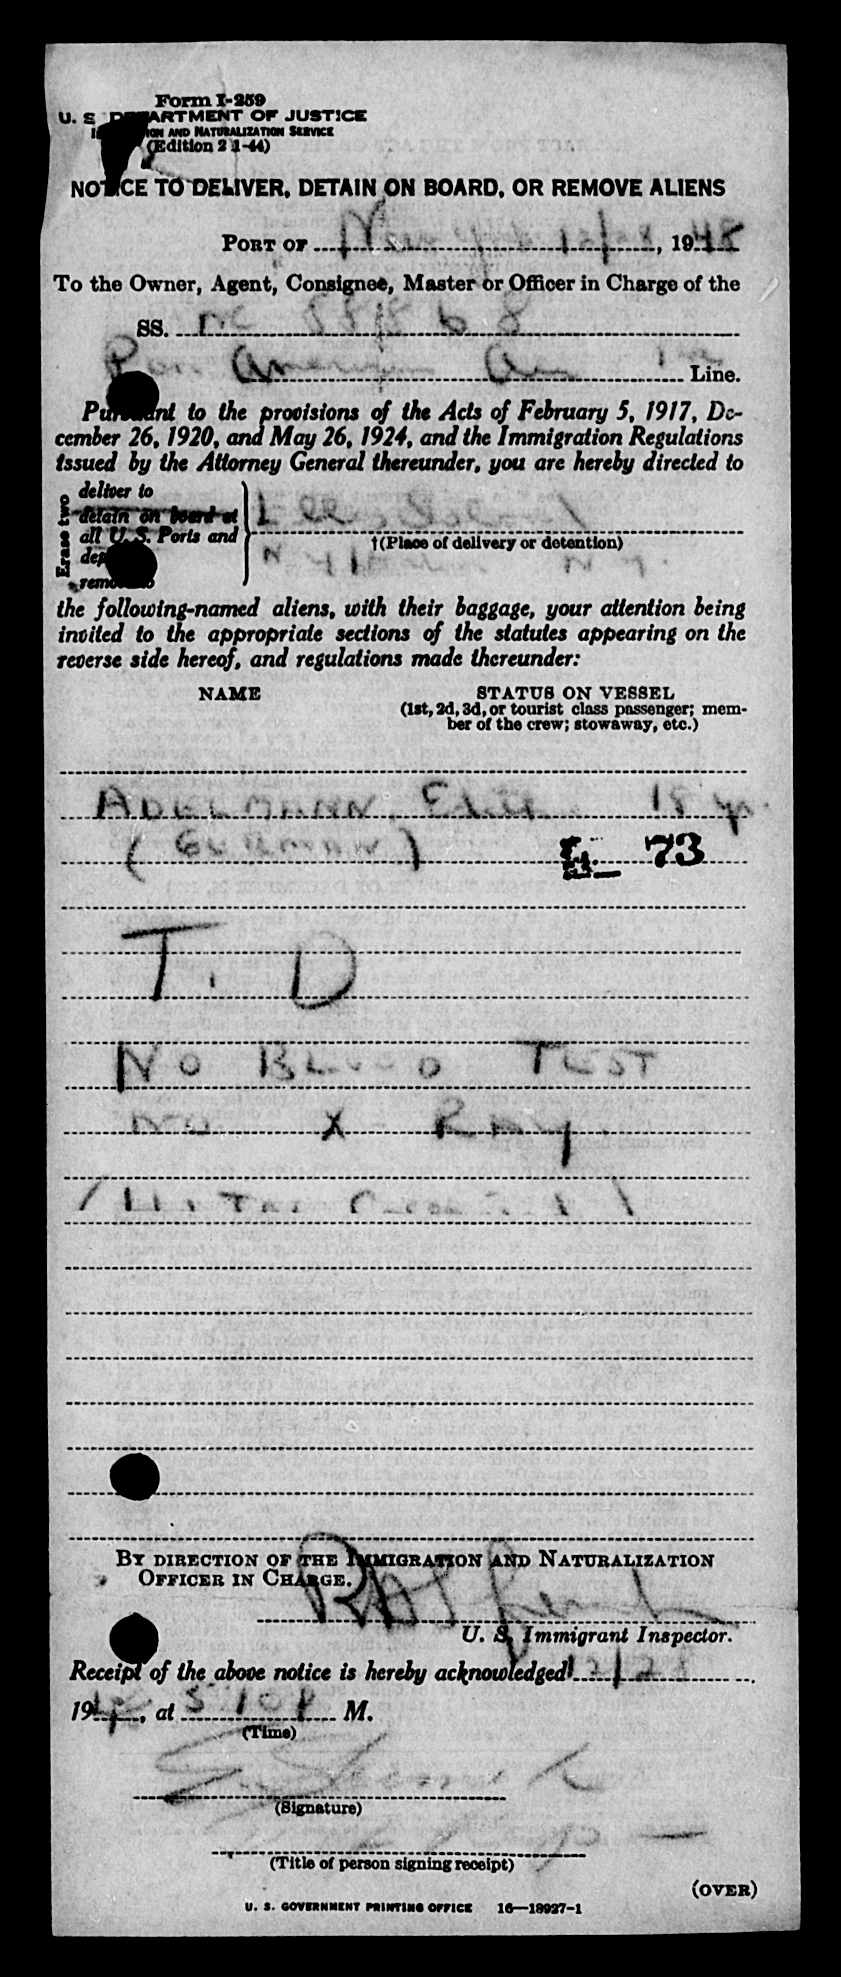 Form I-259
U. S. DEPARTMENT OF JUSTICE
IMMIGRATION AND NATURALIZATION SERVICE
(Edition 2-1-44)
NOTICE TO DELIVER, DETAIN ON BOARD, OR REMOVE ALIENS
PORT OF New York 12/28, 1948
To the Owner, Agent, Consignee, Master or Officer in Charge of the
SS. NC 88868
Pan American Air Line.
Pursuant to the provisions of the Acts of February 5, 1917, De-
cember 26, 1920, and May 26, 1924, and the Immigration Regulations
issued by the Attorney General thereunder, you are hereby directed to
Erase two
deliver to
detain on board at
all U. S. Ports and
remove to
Ellis Island
†(Place of delivery or detention)
N. Y. N. Y.
the following-named aliens, with their baggage, your attention being
invited to the appropriate sections of the statutes appearing on the
reverse side hereof, and regulations made thereunder:
NAME STATUS ON VESSEL
(1st, 2d, 3d, or tourist class passenger; mem-
ber of the crew; stowaway, etc.)
ADELMANN, Edith 18 yr.
(GERMAN) 73
T. D
NO BLOOD TEST
NO X-RAY
BY DIRECTION OF THE IMMIGRATION AND NATURALIZATION
OFFICER IN CHARGE.
U. S. Immigrant Inspector.
Receipt of the above notice is hereby acknowledged 12/28
1948, at 5 10 P M.
(Time)
(Signature)
(Title of person signing receipt)
(OVER)
U. S. GOVERNMENT PRINTING OFFICE 16—18927-1